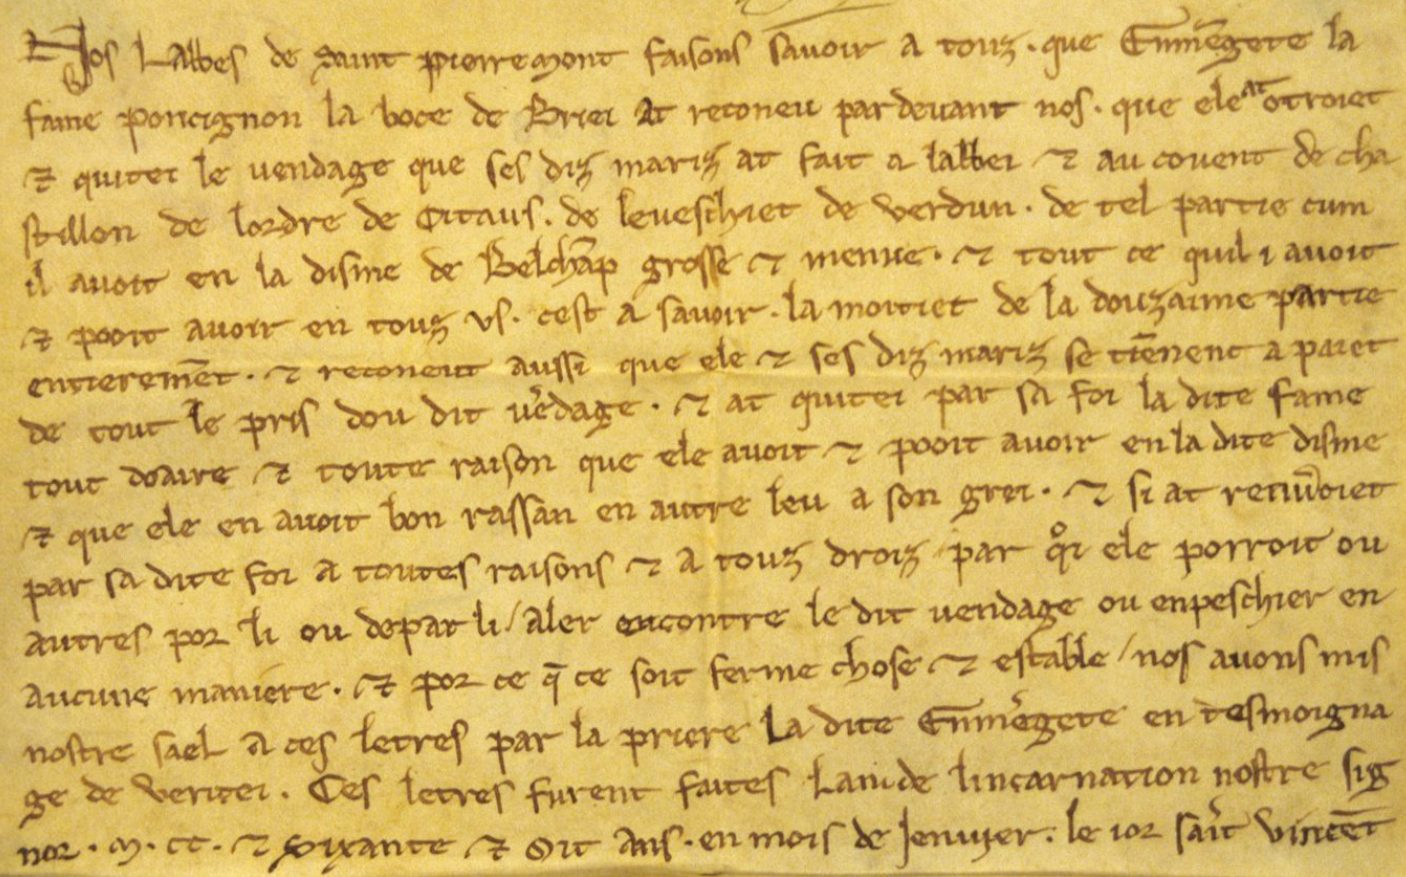 Nos Labbes de saint pierremont faisons savoir a touz · que Enmēgete la
fame poncignon la boce de Briei at reconeu pardevant nos · que ele at otroiet
⁊ quitei le vendage que ses diz mariz at fait a labbei ⁊ au covent de cha
stillon de lordre de Citaus · de leveschiet de verdun · de tel partie cum
il avoit en la disme de Belchāp grosse ⁊ menue · ⁊ tout ce quil i avoit
⁊ pooit avoir en touz us · cest a savoir · la moitiet de la douzaime partie
entieremēt · ⁊ reconeut aussi que ele ⁊ ses diz mariz se tiēnent a paiet
de tout le pris dou dit vēdage · ⁊ at quitei par sa foi la dite fame
tout doaire ⁊ toute raison que ele avoit ⁊ pooit avoir en la dite disme
⁊ que ele en avoit bon rassan en autre leu a son grei · ⁊ si at renūciet
par sa dite foi a toutes raisons ⁊ a touz droiz par qoi ele porroit ou
autres por li ou depar li / aler encontre le dit vendage ou enpeschier en
aucune maniere · ⁊ por ce q̄ ce soit ferme chose ⁊ estable / nos avons mis
nostre sael a ces letres par la priere La dite Enmēgete en tesmoigna
ge de veritei · Ces letres furent faites Lan de lincarnation nostre sig
nor · m · cc · ⁊ sixante ⁊ oit ans · en mois de Jenvier · le ior saīt vincēt